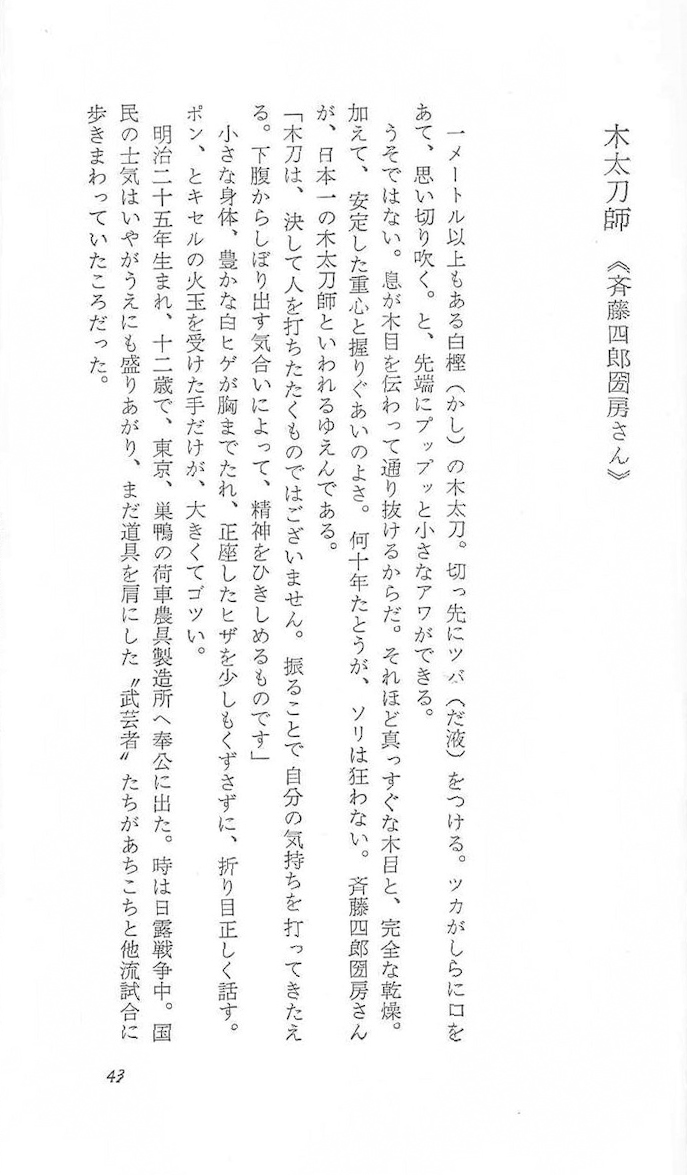 木太刀師 《斉藤四郎圀房さん》
一メートル以上もある白樫（かし）の木太刀。切っ先にツバ（だ液）をつける。ツカがしらに口を
あて、思い切り吹く。と、先端にプップッと小さなアワができる。
うそではない。息が木目を伝わって通り抜けるからだ。それほど真っすぐな木目と、完全な乾燥。
加えて、安定した重心と握りぐあいのよさ。何十年たとうが、ソリは狂わない。斉藤四郎圀房さん
が、日本一の木太刀師といわれるゆえんである。
「木刀は、決して人を打ちたたくものではございません。振ることで自分の気持ちを打ってきたえ
る。下腹からしぼり出す気合いによって、精神をひきしめるものです」
小さな身体、豊かな白ヒゲが胸までたれ、正座したヒザを少しもくずさずに、折り目正しく話す。
ポン、とキセルの火玉を受けた手だけが、大きくてゴツい。
明治二十五年生まれ、十二歳で、東京、巣鴨の荷車農具製造所へ奉公に出た。時は日露戦争中。国
民の士気はいやがうえにも盛りあがり、まだ道具を肩にした〝武芸者〟たちがあちこちと他流試合に
歩きまわっていたころだった。
43